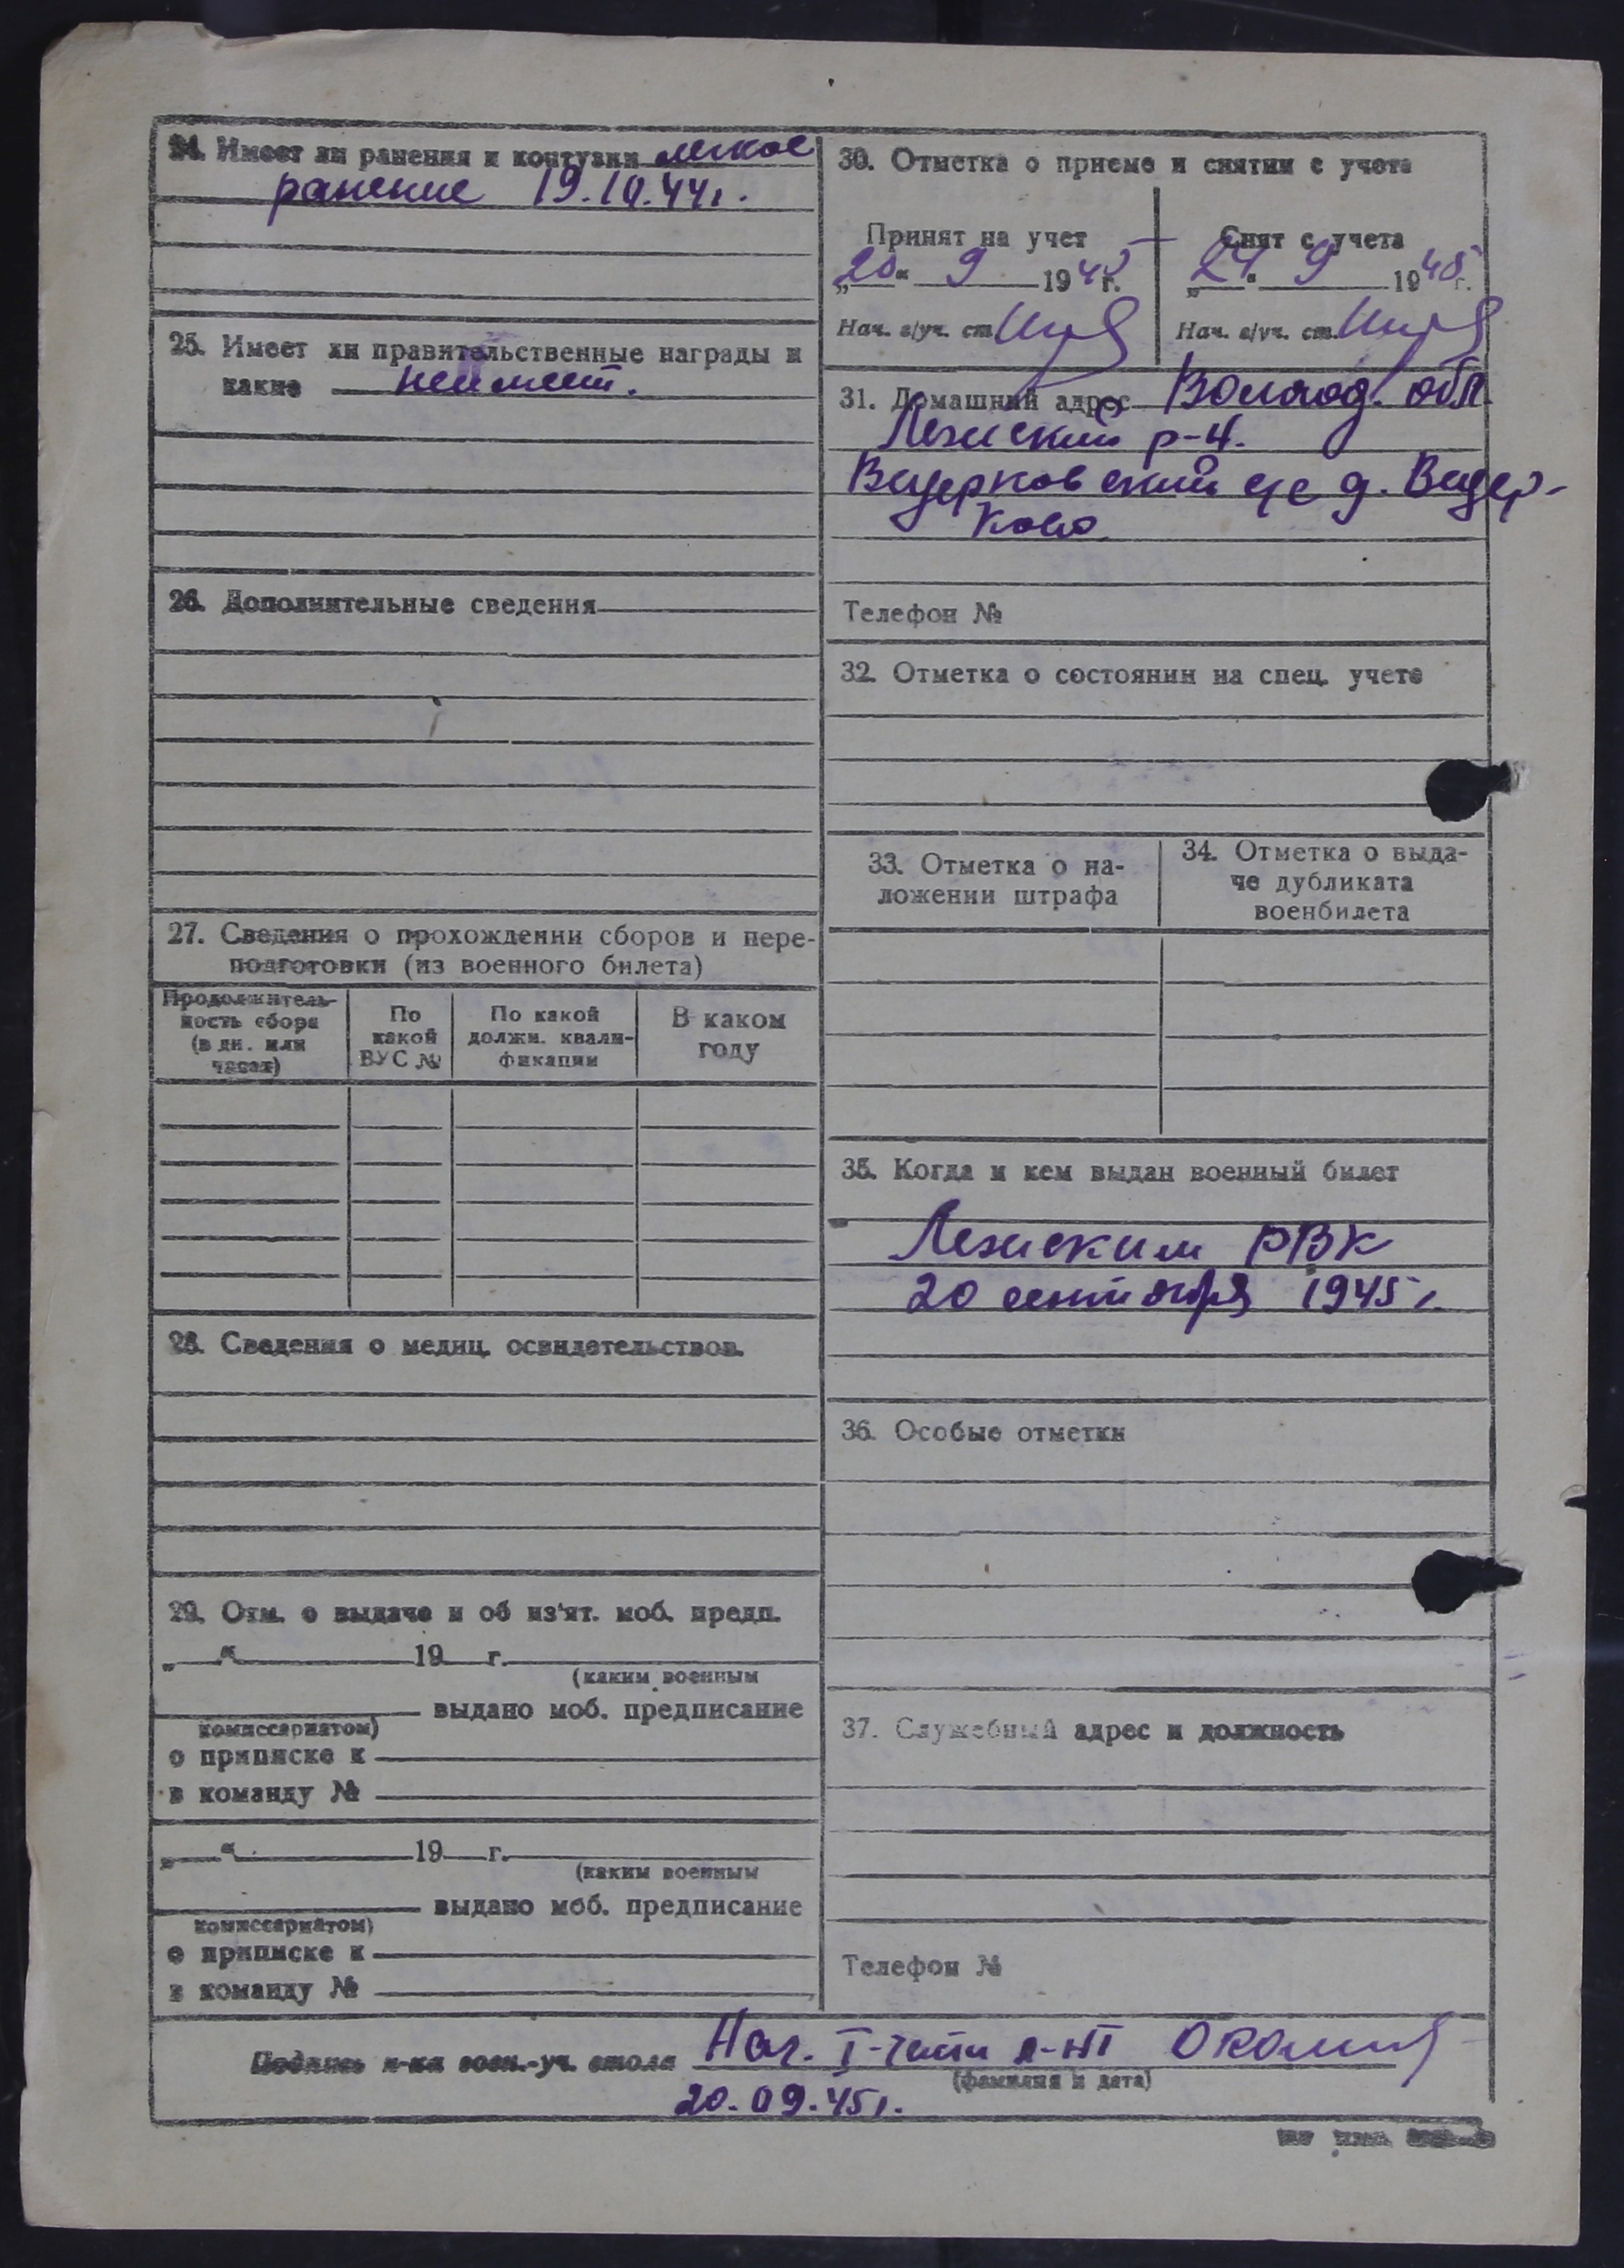 24. Имеет ли ранения и контузии легкое
ранение 19.10.44г.
25. Имеет ли правительственные награды и
какие неимеет.
26. Дополнительные сведения
27. Сведения о прохождении сборов и пере-
подготовки (из военного билета)
Продолжитель-
ность сбора
(в дн. или
часах)
По
какой
ВУС №
По какой
должн. квали-
фикации
В каком
году
28. Сведения о медиц. освидетельствов.
29. Отм. о выдаче и об из'ят. моб. предп.
„ “ 19 г.
(каким военным
выдано моб. предписание
комиссариатом)
о приписке к
в команду №
„ “ 19 г.
(каким военным
выдано моб. предписание
комиссариатом)
о приписке к
в команду №
30. Отметка о приеме и снятии с учета
Принят на учет
„20“ 9 1945г.
Нач. в/уч. ст.
Снят с учета
„24“ 9 1945г.
Нач. в/уч. ст.
31. Домашний адрес Волгод. обл.
Лежский р-н.
с/с д.
ково
Телефон №
32. Отметка о состоянии на спец. учете
33. Отметка о на-
ложении штрафа
34. Отметка о выда-
че дубликата
военбилета
35. Когда и кем выдан военный билет
Лежским РВК
20 сентября 1945г.
36. Особые отметки
37. Служебный адрес и должность
Телефон №
Подпись н-ка воен.-уч. стола Нач. I-части л-нт
(фамилия и дата)
20.09.45г.